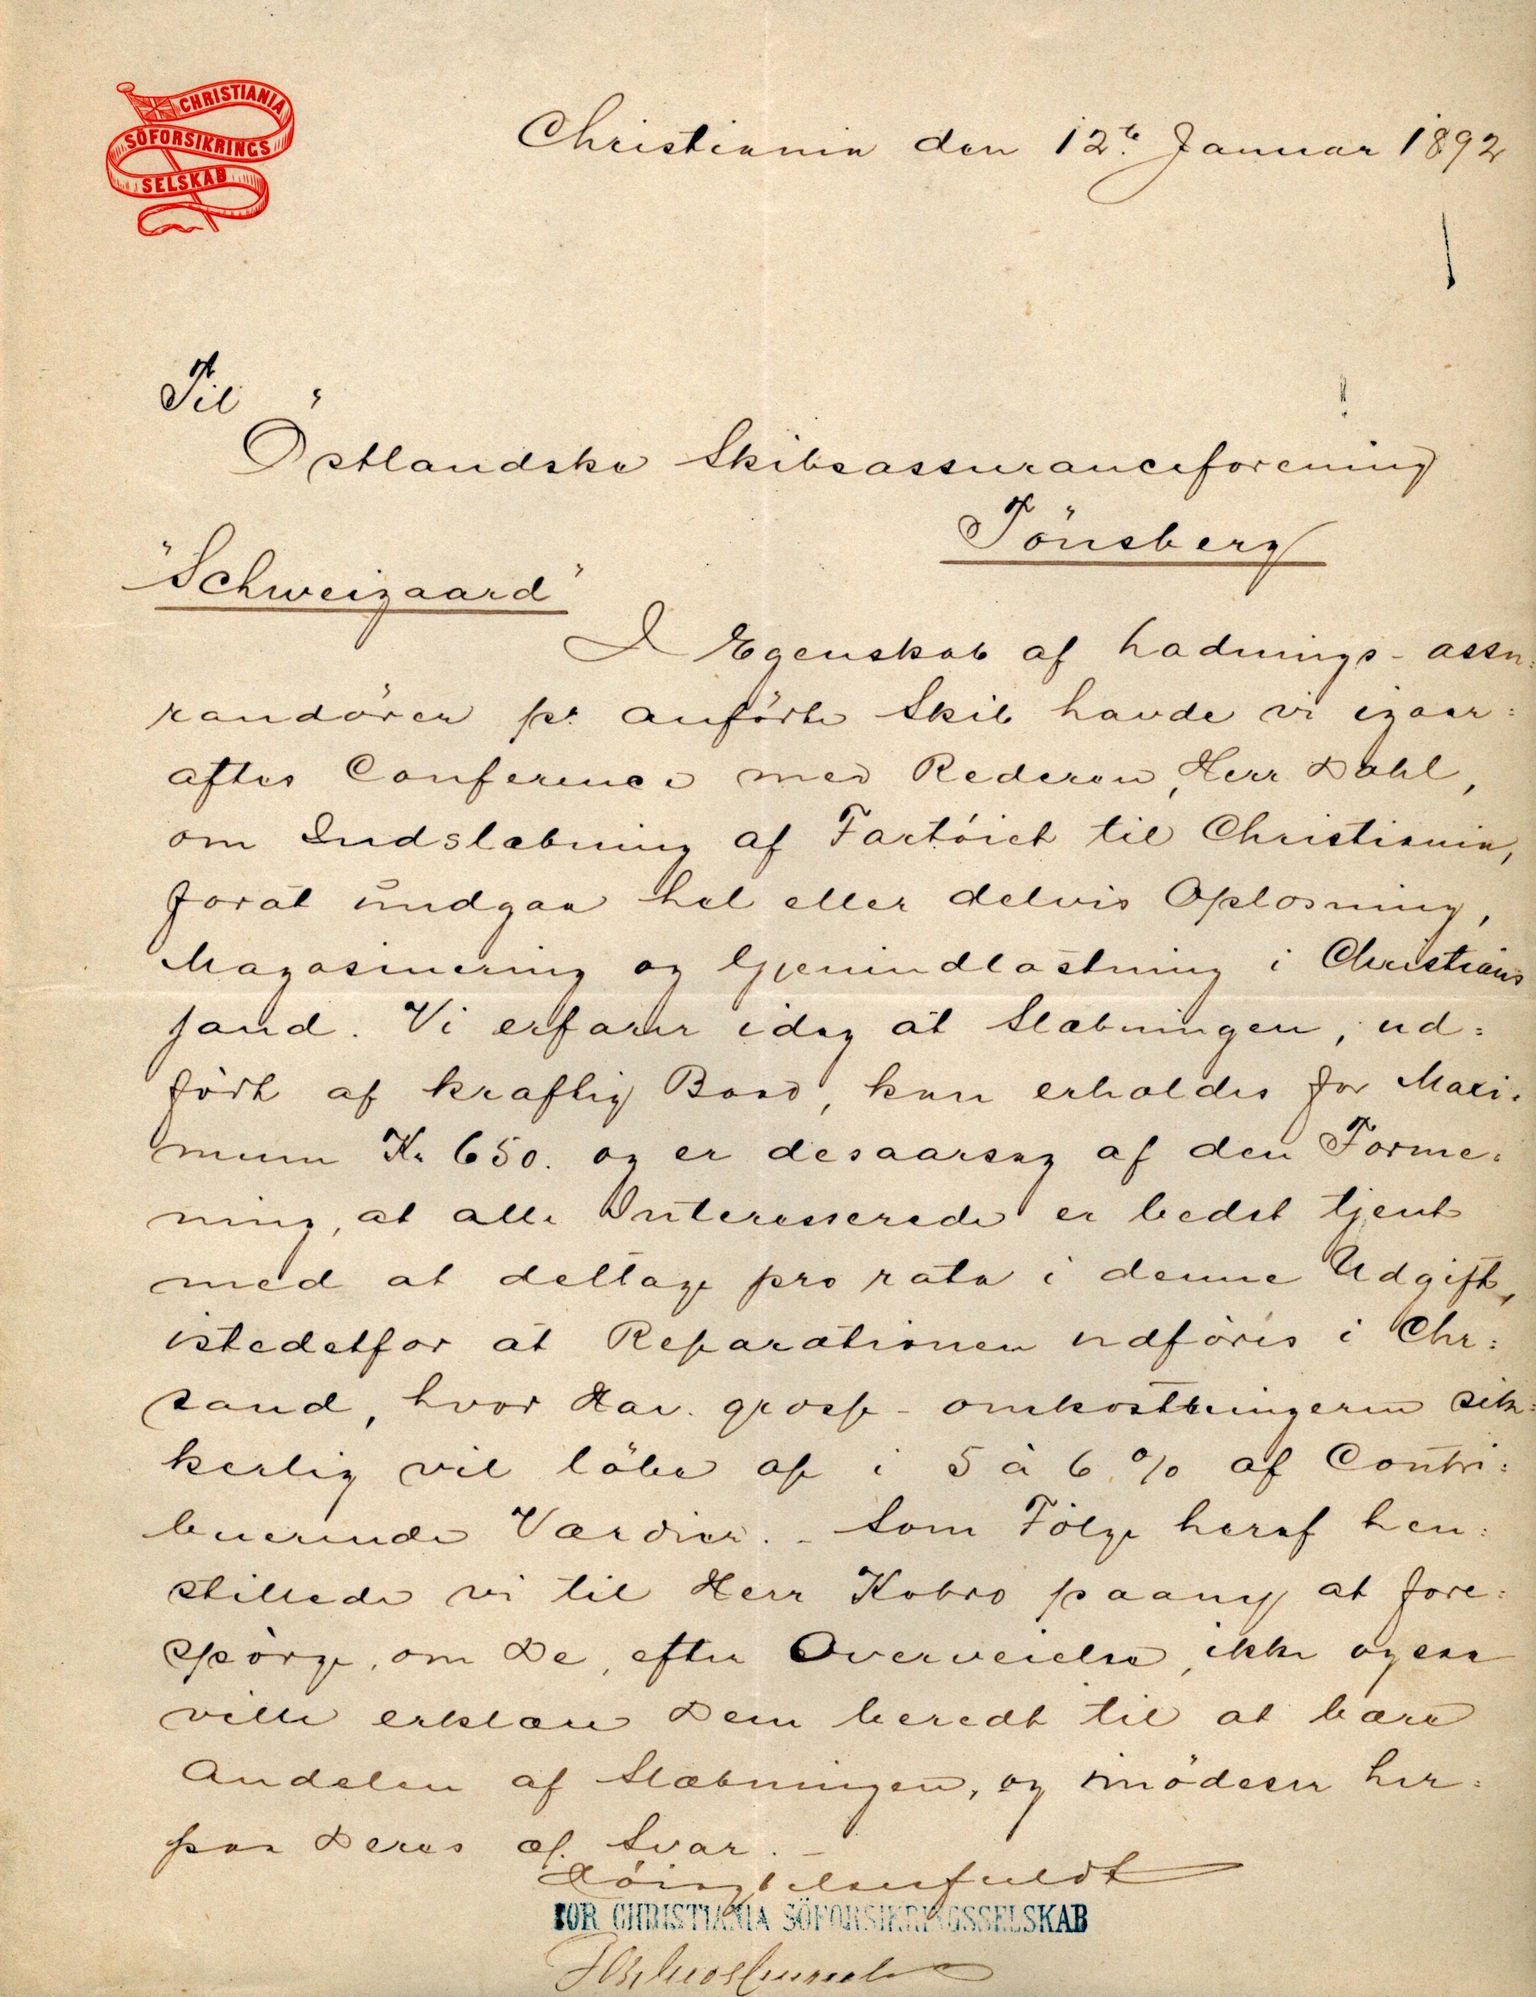 CHRISTIANIA
SÖFORSIKRINGS
SELSKAB
Christiania den 12te Januar 1892
Til
Östlandske Skibsassuranceforening
Tönsberg
"Schweigaard"
I Egenskab af Ladnings-assu=
randörer pr anförte Skib havde vi igaar=
aftes Conference med Rederen, Herr Dahl,
om Indslæbning af Fartöiet til Christiania,
forat undgaa hel eller delvis Oplosning,
Magasinering og Gjenindlastning i Christians
sand. Vi erfarer idag at Slæbningen, ud=
fört af kraftig Baad, kan erholdes for Maxi=
mum Kr 650. og er desaarsag af den Forme=
ning, at alle Interesserede er bedst tjent
med at deltage pro rata i denne Udgift,
istedetfor at Reparationen udföres i Chr=
sand, hvor Hav. grosse-omkostningerne sik=
kerlig vil löbe op i 5 à 6 % af Contri=
buerende Værdier. - Som Fölge heraf hen=
stillede vi til Herr Kobro paany at fore=
spörge, om De, efter Overveielse, ikke ogsaa
ville erklære Dem beredt til at bære
Andelen af Slæbningen, og imödeser her=
paa Deres æ. Svar. -
Höiagtelsesfuldt
FOR CHRISTIANIA SÖFORSIKRINGSSELSKAB